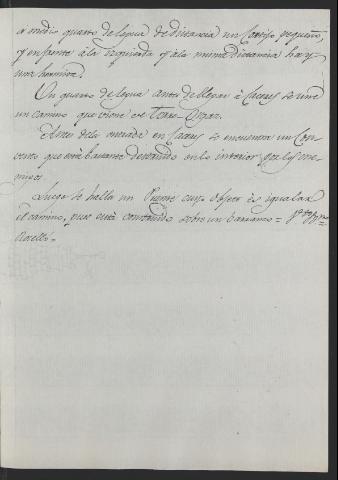 a medio quarto de legua de distancia un Cortijo pequeño,
y enfrente á la izquierda y á la misma distancia hay
una hermita.
Un quarto de legua antes de llegar á Caceres se une
un camino que viene de
Antes de la entrada en Caceres se encuentra un Con-
vento que está bastante destruido en lo interior por los ene-
migos.
Luego se halla un Puente cuyo objeto es igualar
el camino, pues está construido sobre un barranco =